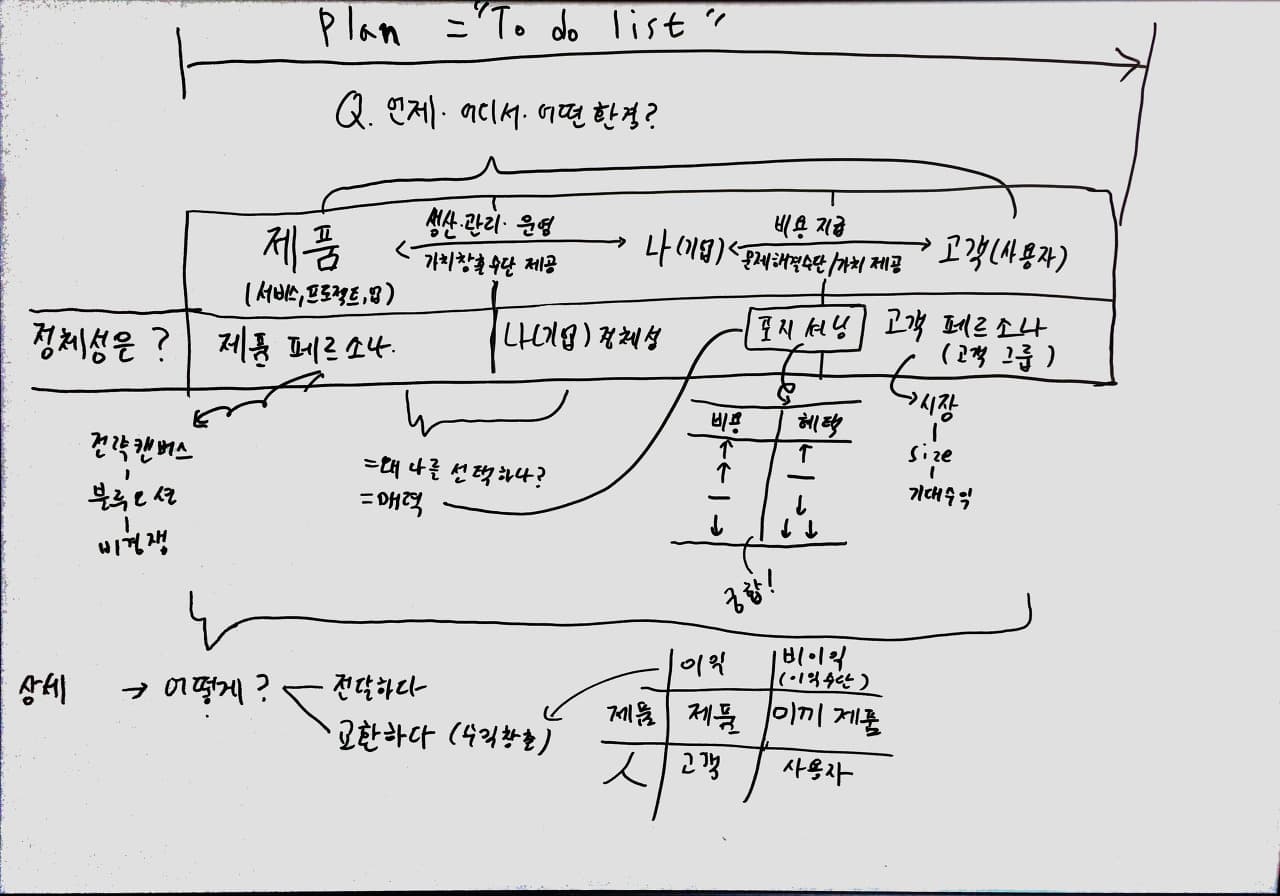 Plan = "To do list"
Q. 언제. 어디서. 어떤 한결?
제품
(서비스, 프로젝트, 업)
생산·관리· 운영
가치창출수단 제공
나(기업)
비용 지급
문제해결수단/가치 제공
고객(사용자)
정체성은?
제품 페르소나.
나(기업) 정체성
포지셔닝
고객 페르소나
(고객 그룹)
전략캔버스
블루오션
비경쟁
=왜 나를 선택하나?
=매력
비용
혜택
↑ ↑
↑ —
— ↓
↓ ↓↓
궁합!
시장
size
기대수익
상세 → 어떻게?
전달하다
교환하다 (수익창출)
이익
비이익
(이익수단)
제품 제품 미끼 제품
人 고객 사용자